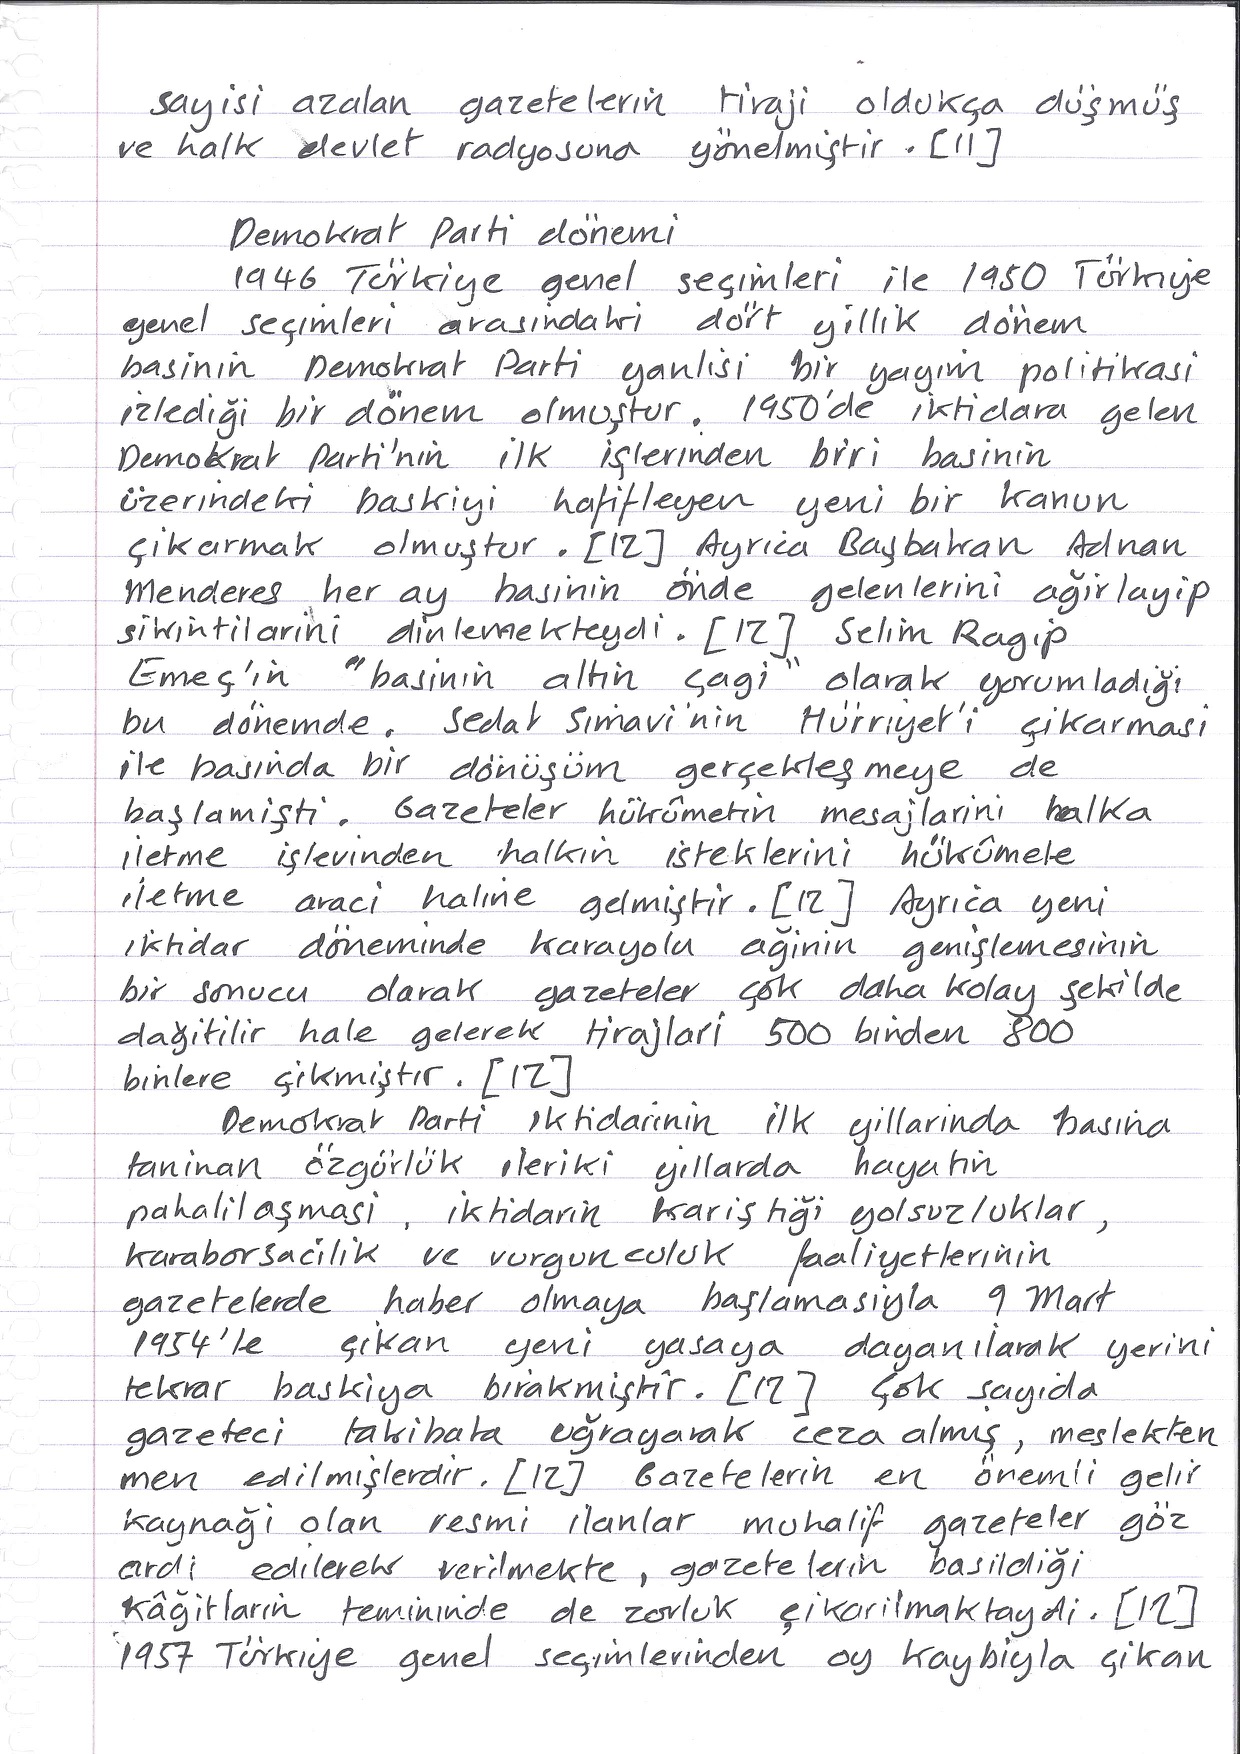 sayisi azalan gazetelerin tiraji oldukça düşmüş
ve halk devlet radyosuna yönelmiştir. [11]
Demokrat Parti dönemi
1946 Türkiye genel seçimleri ile 1950 Türkiye
genel seçimleri arasindaki dört yillik dönem
basinin Demokrat Parti yanlisi bir yayin politikasi
izlediği bir dönem olmuştur. 1950'de iktidara gelen
Demokrat Parti'nin ilk işlerinden biri basinin
üzerindeki baskiyi hafifleyen yeni bir kanun
çikarmak olmuştur. [12] Ayrica Başbakan Adnan
Menderes her ay basinin önde gelenlerini ağirlayip
sikintilarini dinlemekteydi. [12] Selim Ragip
Emeç'in "basinin altin çagi" olarak yorumladiği
bu dönemde. Sedat Simavi'nin Hürriyet'i çikarmasi
ile basinda bir dönüşüm gerçekleşmeye de
başlamişti. Gazeteler hükûmetin mesajlarini halka
iletme işlevinden halkin isteklerini hükûmete
iletme araci haline gelmiştir. [12] Ayrica yeni
iktidar döneminde karayolu ağinin genişlemesinin
bir sonucu olarak gazeteler çok daha kolay şekilde
dağitilir hale gelerek tirajlari 500 binden 800
binlere çikmiştir. [12]
Demokrat Parti iktidarinin ilk yillarinda basina
taninan özgürlük ileriki yillarda hayatin
pahalilaşmasi, iktidarin kariştiği yolsuzluklar,
karaborsacilik ve vurgunculuk faaliyetlerinin
gazetelerde haber olmaya başlamasiyla 9 Mart
1954'te çikan yeni yasaya dayanilarak yerini
tekrar baskiya birakmiştir. [12] Çok sayida
gazeteci takibata uğrayarak ceza almiş, meslekten
men edilmişlerdir. [12] Gazetelerin en önemli gelir
kaynaği olan resmi ilanlar muhalif gazeteler göz
ardi edilerek verilmekte, gazetelerin basildiği
kâğitlarin temininde de zorluk çikarilmaktaydi. [12]
1957 Türkiye genel seçimlerinden oy kaybiyla çikan